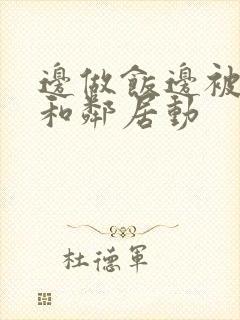 邊做飯邊被
和鄰居動
杜德軍